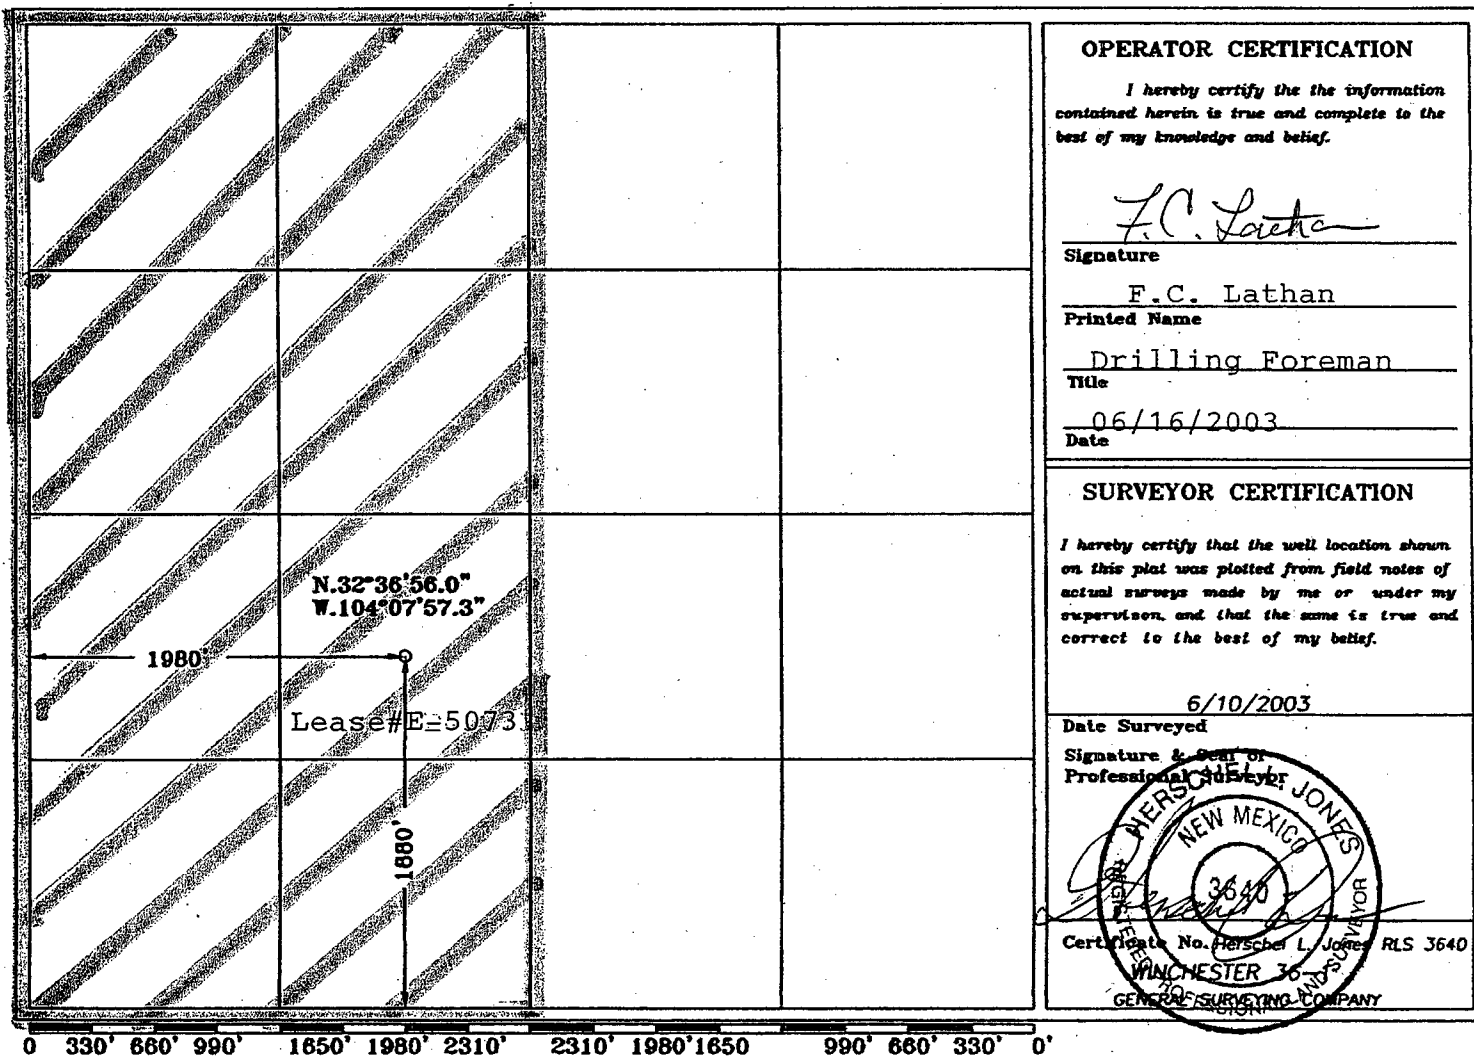 N.32°36'56.0"
W.104°07'57.3"
1980'
Lease#E-5073
1880'
0 330' 660' 990' 1650' 1980' 2310' 2310' 1980' 1650 990' 660' 330' 0'
OPERATOR CERTIFICATION
I hereby certify the the information
contained herein is true and complete to the
best of my knowledge and belief.
F.C. Lathan
Signature
F.C. Lathan
Printed Name
Drilling Foreman
Title
06/16/2003
Date
SURVEYOR CERTIFICATION
I hereby certify that the well location shown
on this plat was plotted from field notes of
actual surveys made by me or under my
supervison, and that the same is true and
correct to the best of my belief.
6/10/2003
Date Surveyed
Signature & Seal of
Professional Surveyor
HERSCHEL L. JONES
NEW MEXICO
3640
REGISTERED PROFESSIONAL LAND SURVEYOR
Certificate No. Herschel L. Jones RLS 3640
WINCHESTER 36-
GENERAL SURVEYING COMPANY